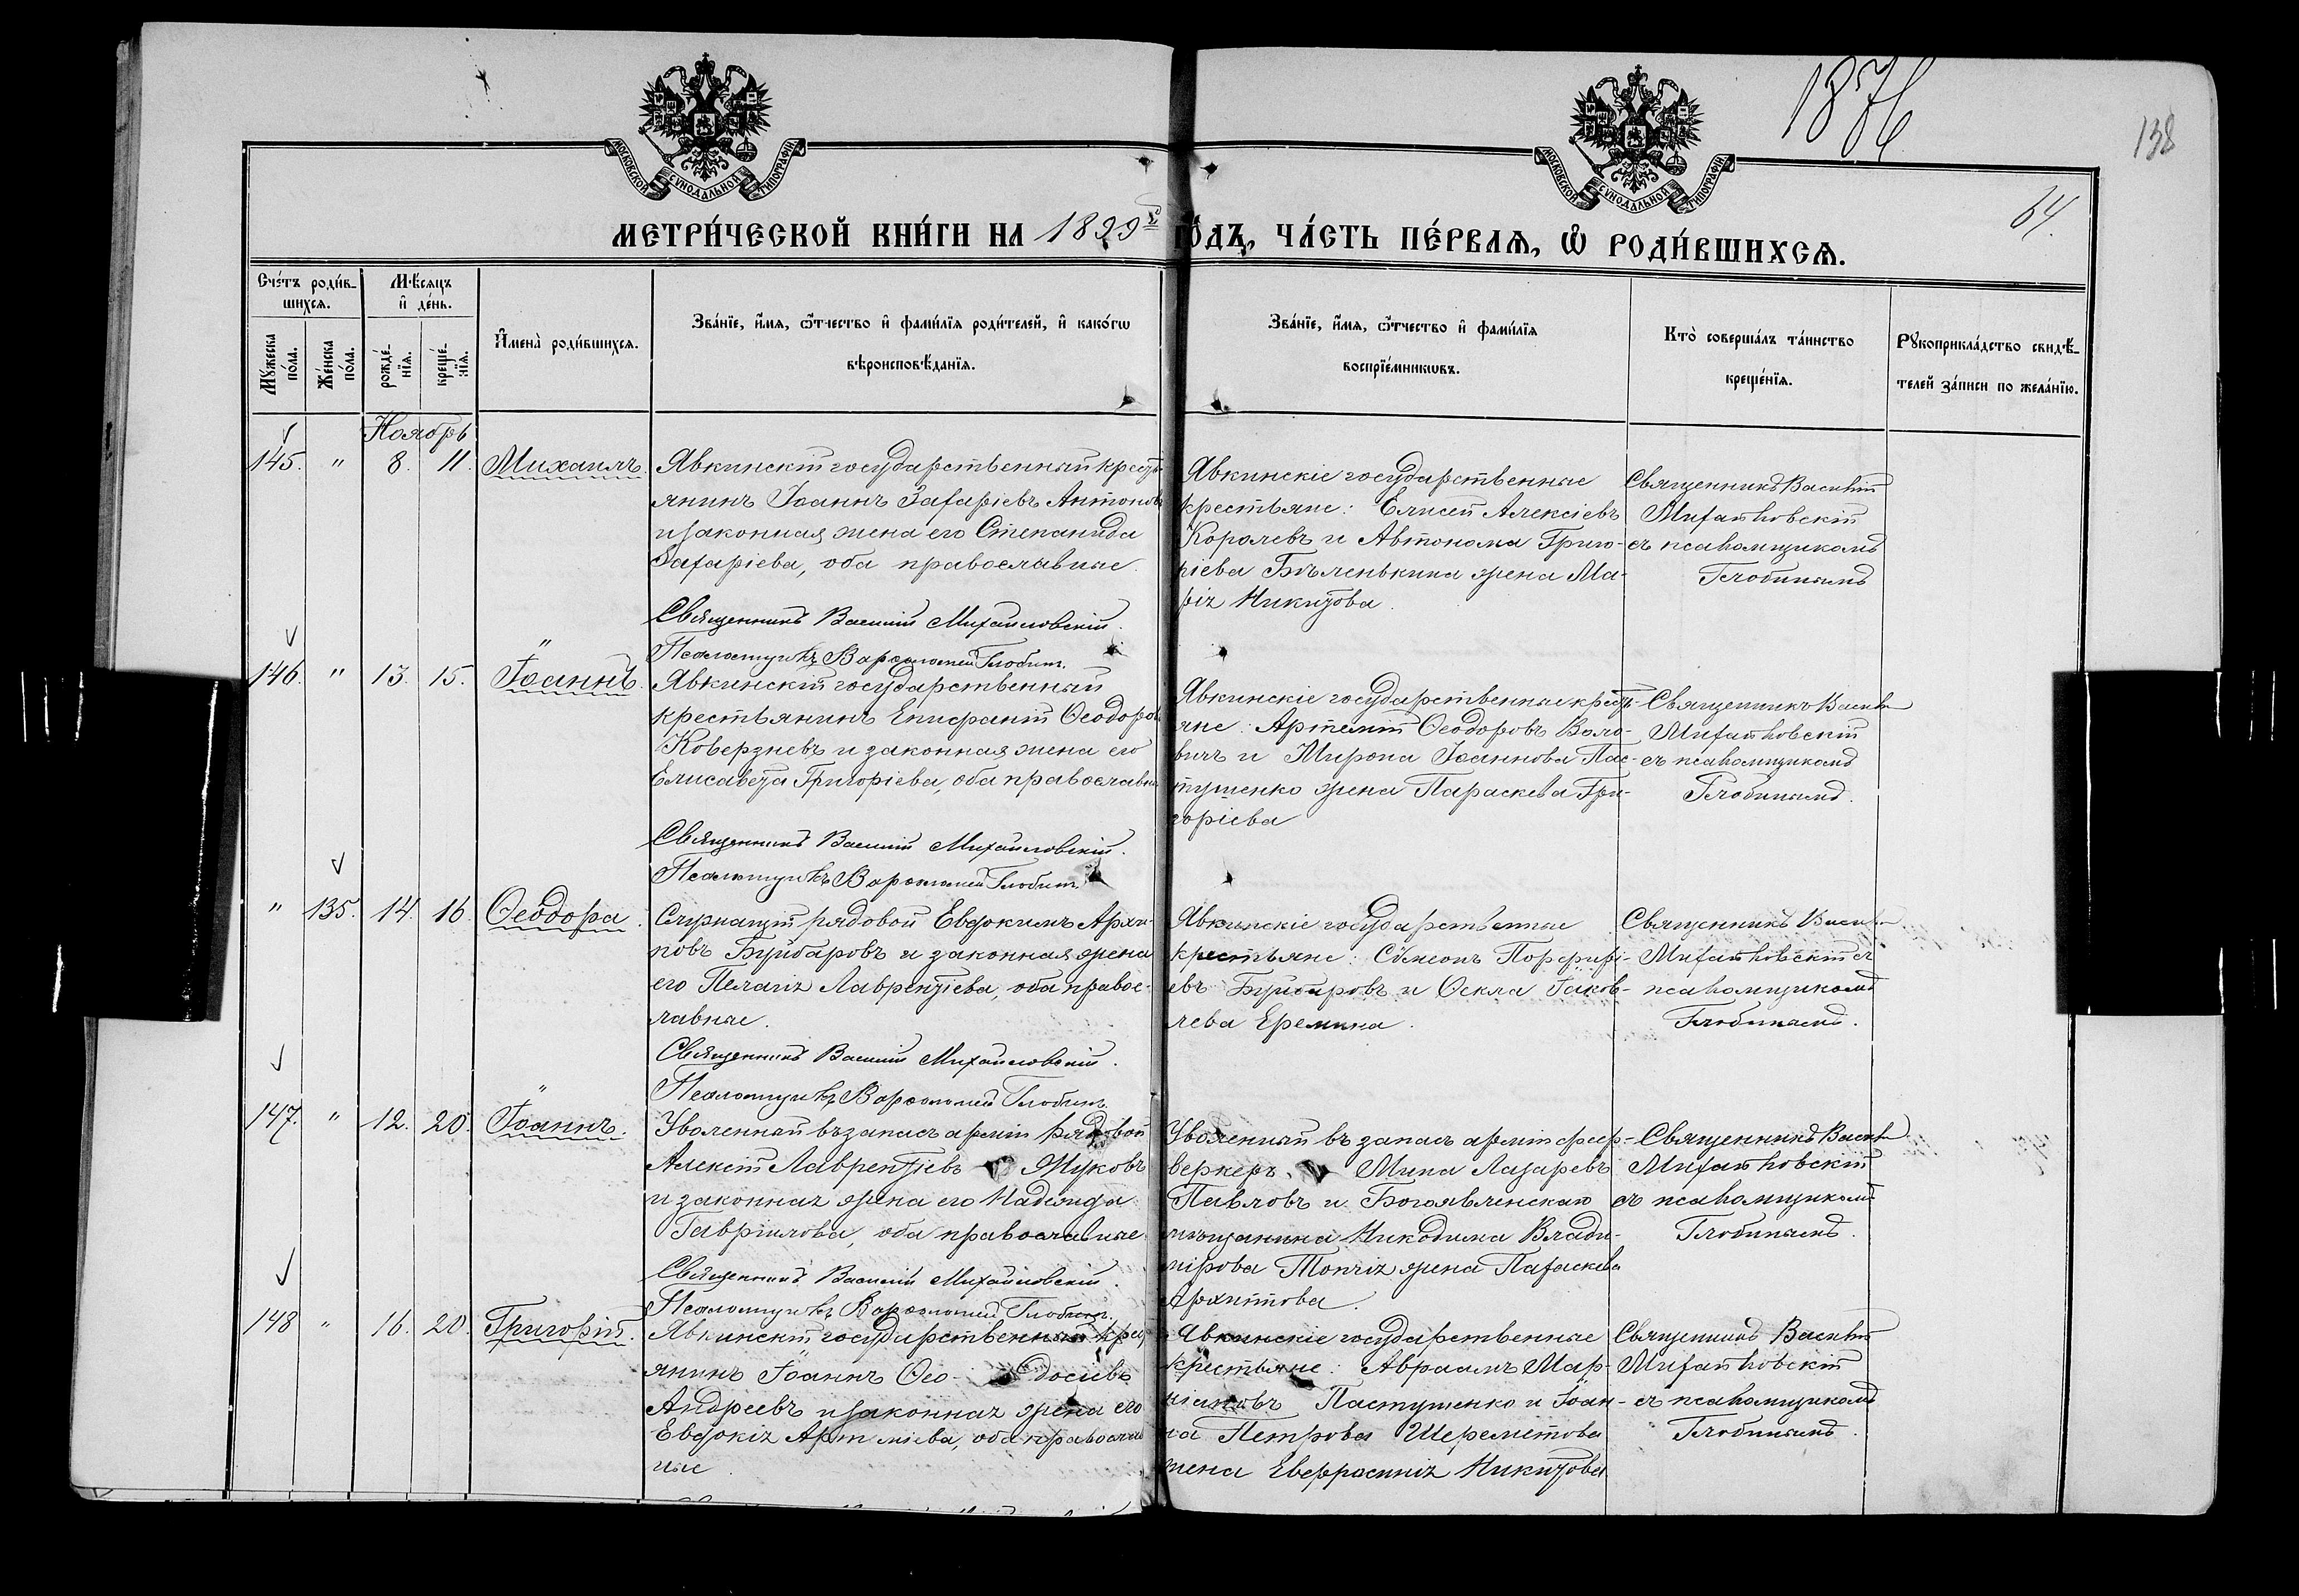 1876
138
64.
МОСКОВСКОЙ СѴНОДАЛЬНОЙ ТИПОГРАФІИ
МОСКОВСКОЙ СѴНОДАЛЬНОЙ ТИПОГРАФІИ
МЕТРИ́ЧЕСКОЙ КНИ́ГИ НА 1899й ГО́ДЪ, ЧА́СТЬ ПЕ́РВАѦ, Ѿ РОДИ́ВШИХСѦ.
Сче́тъ роди́в-
шихсѧ.
Мꙋ́жеска
по́ла.
Же́нска
по́ла.
Мѣ́сѧцъ
и҆ де́нь.
рожде́-
нїѧ.
креще́-
нїѧ.
И҆мена̀ роди́вшихсѧ.
Зва́нїе, и҆́мѧ, ѻ҆́тчество и҆ фами́лїѧ роди́телей, и҆ како́гѡ
вѣроисповѣ́данїѧ.
Зва́нїе, и҆́мѧ, ѻ҆́тчество и҆ фами́лїѧ
воспрїе́мникѡвъ.
Кто̀ соверша́лъ та́инство
креще́нїѧ.
Рꙋкоприкла́дство свидѣ́-
телей за́писи по жела́нїю.
Ноябрь
145. " 8. 11. Михаилъ.
Явкинскій государственный кресть-
янинъ Іоаннъ Захаріевъ Антоновъ
и законная жена его Степанида
Захаріева, оба православные.
Священникъ Василій Михайловскій.
Псаломщикъ Варѳоломей Глобинъ.
Явкинскіе государственные
крестьяне: Елисей Алексіевъ
Королевъ и Автонома Григо-
ріева Бѣленькина жена Ма-
рія Никитова.
Священникъ Василій
Михайловскій
съ псаломщикомъ
Глобинымъ
146. " 13. 15. Іоаннъ.
Явкинскій государственный
крестьянинъ Епифаній Ѳеодоровъ
Коверзневъ и законная жена его
Елисавета Григоріева, оба православные
Священникъ Василій Михайловскій.
Псаломщикъ Варѳоломей Глобинъ.
Явкинскіе государственные кресть-
яне: Артемій Ѳеодоровъ Воло-
вичъ и Мирона Іоаннова Пас-
тушенко жена Параскева Гри-
горіева
Священникъ Василій
Михайловскій
съ псаломщикомъ
Глобинымъ.
" 135. 14. 16. Ѳеодора.
Служащій рядовой Евдокимъ Архи-
повъ Буйбаровъ и законная жена
его Пелагія Лаврентіева, оба правос-
лавные.
Священникъ Василій Михайловскій.
Псаломщикъ Варѳоломей Глобинъ.
Явкинскіе государственные
крестьяне: Сѵмеонъ Порфирі-
евъ Буйбаровъ и Ѳекла Іаков-
лева Еремина.
Священникъ Василій
Михайловскій съ
псаломщикомъ
Глобинымъ.
147. " 12. 20. Іоаннъ.
Уволенный въ запасъ арміи рядовой
Алексій Лаврентіевъ Жуковъ
и законная жена его Надежда
Гавриилова, оба православные.
Священникъ Василій Михайловскій.
Псаломщикъ Варѳоломей Глобинъ.
Уволенный въ запасъ арміи феер-
веркеръ Мина Лазаревъ
Павловъ и Богоявленскаго
мѣщанина Никодима Влади-
мірова жена Параскева
Архиппова.
Священникъ Василій
Михайловскій
съ псаломщикомъ
Глобинымъ.
148 " 16. 20. Григорій.
Явкинскій государственный крес-
янинъ Іоаннъ Ѳео- досіевъ
Андреевъ и законная жена его
Евдокія Артеміева, оба православ
ные.
Явкинскіе государственные
крестьяне: Авраамъ Мар-
кіановъ Пастушенко и Іоан-
на Петрова Шереметова
жена Евфросинія Никитова
Священникъ Василій
Михайловскій
съ псаломщикомъ
Глобинымъ.